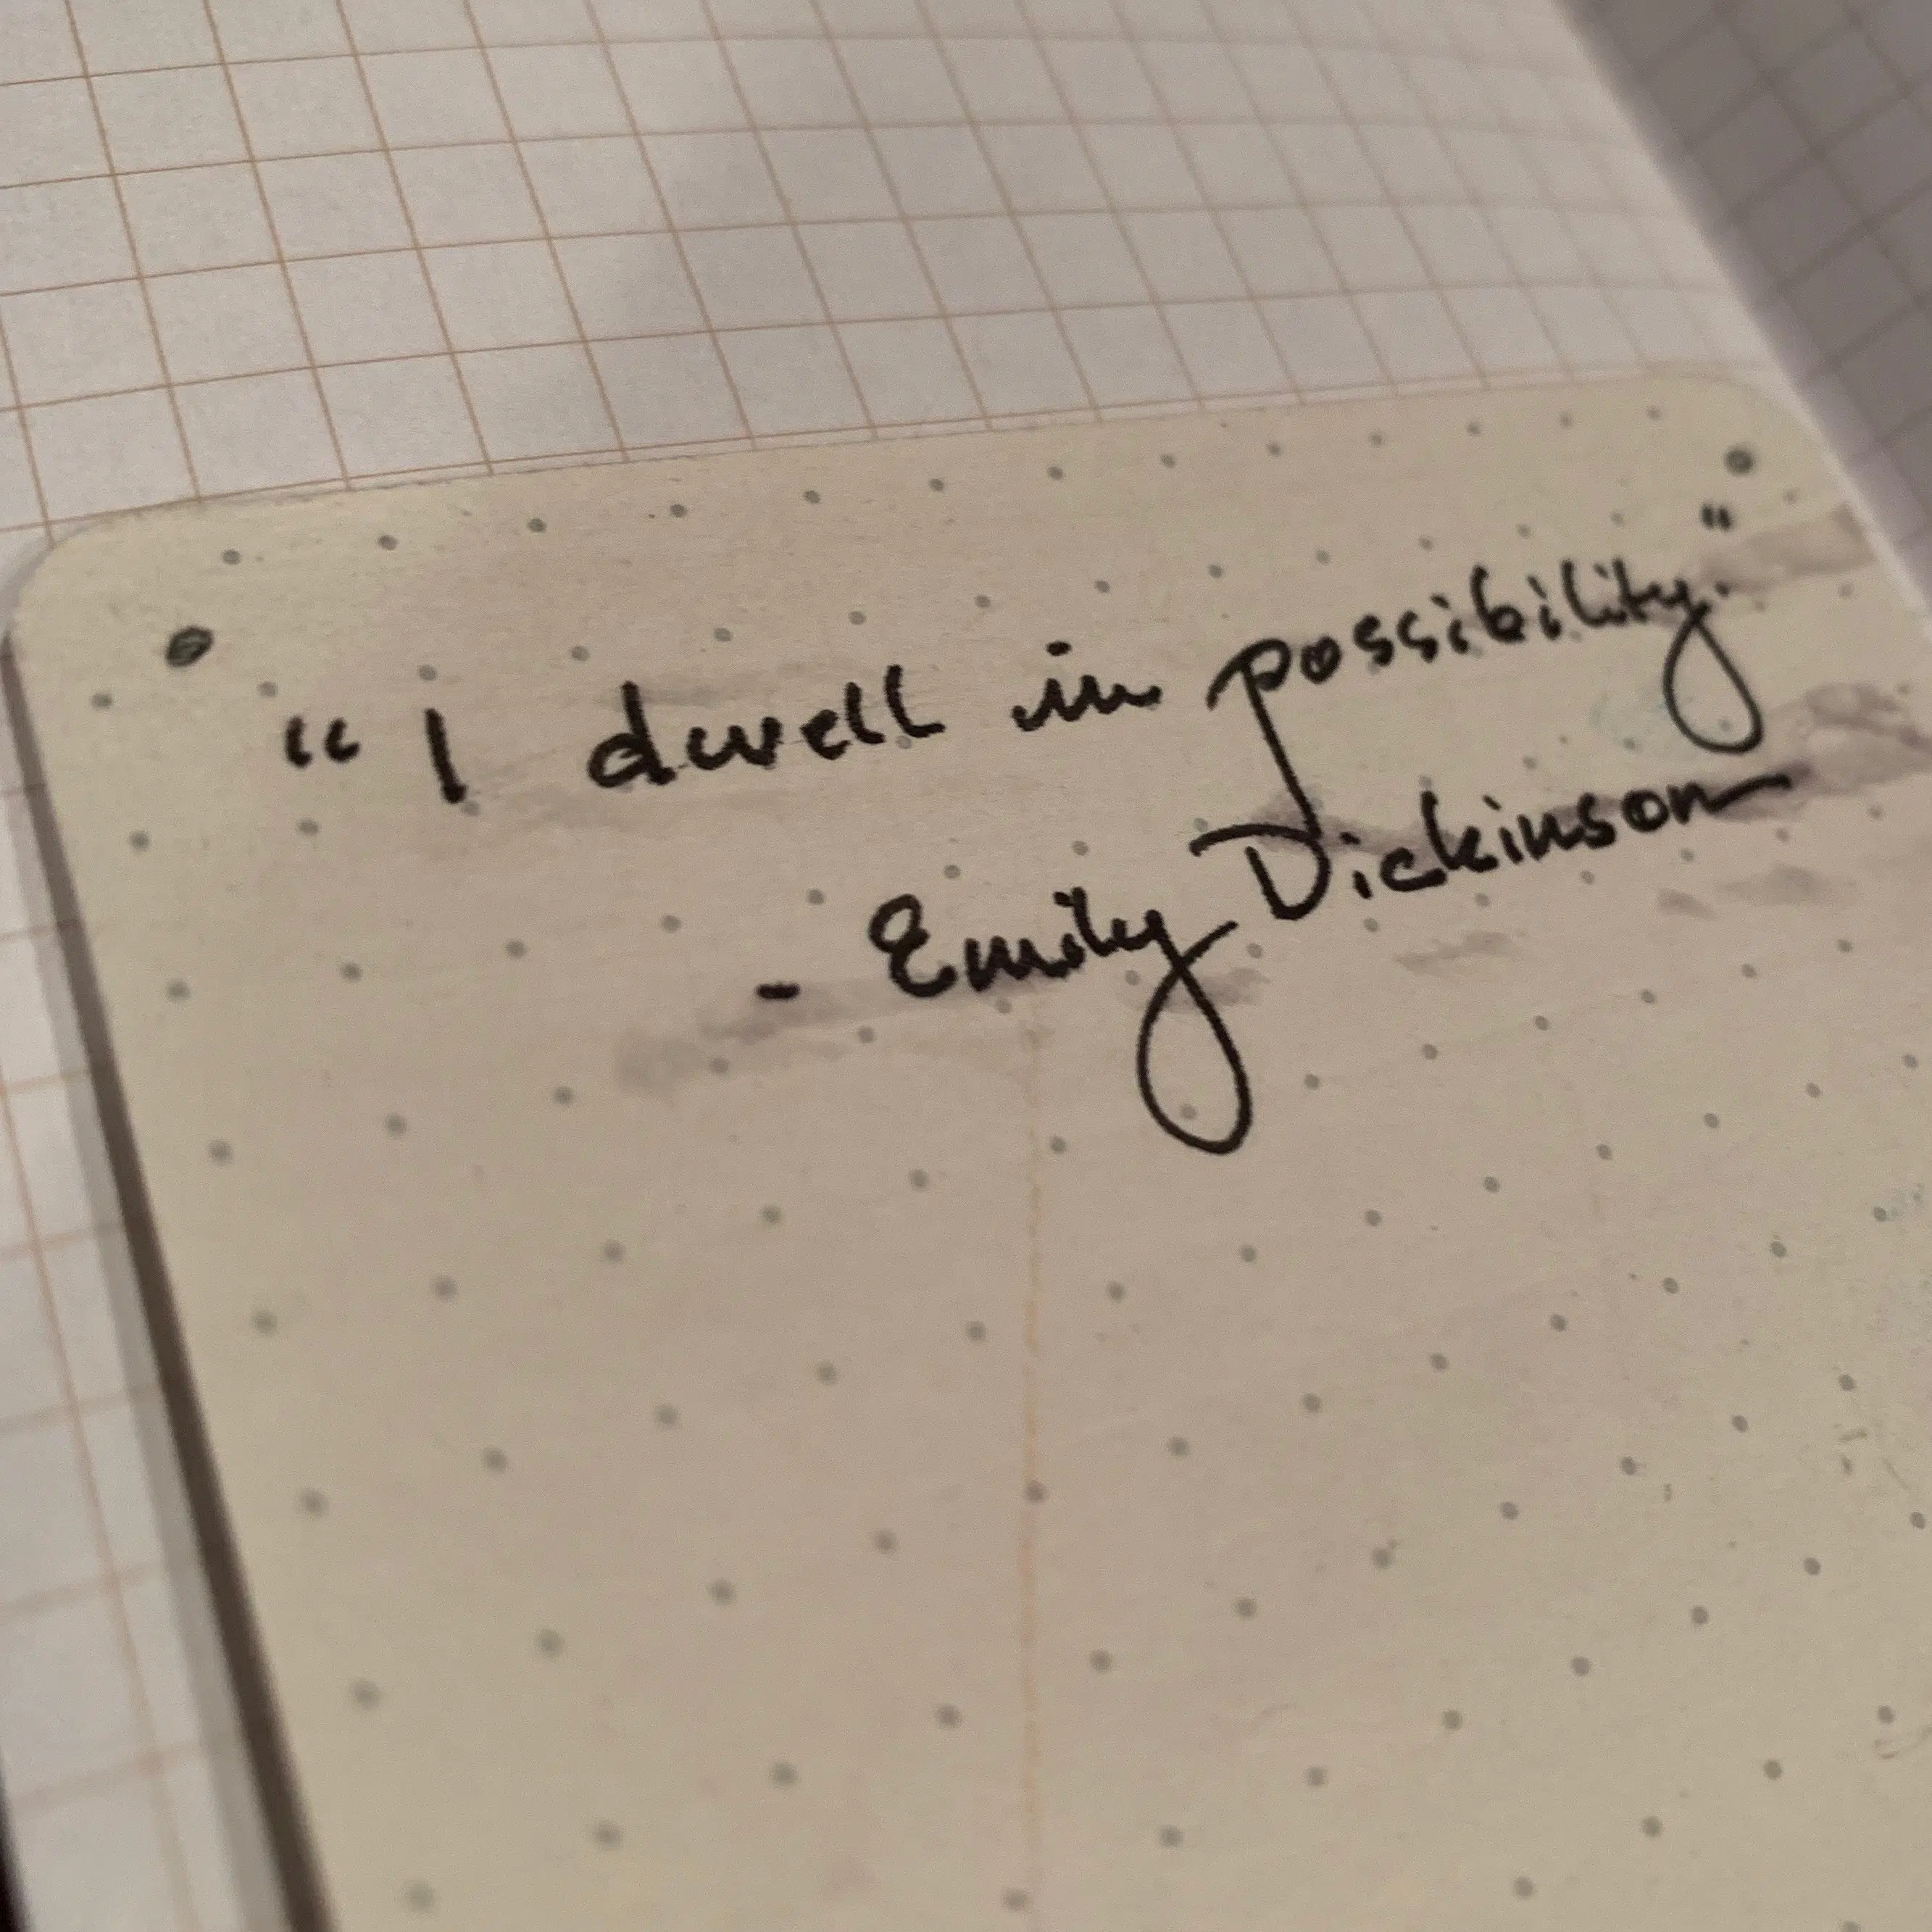 “I dwell in possibility."
- Emily Dickinson